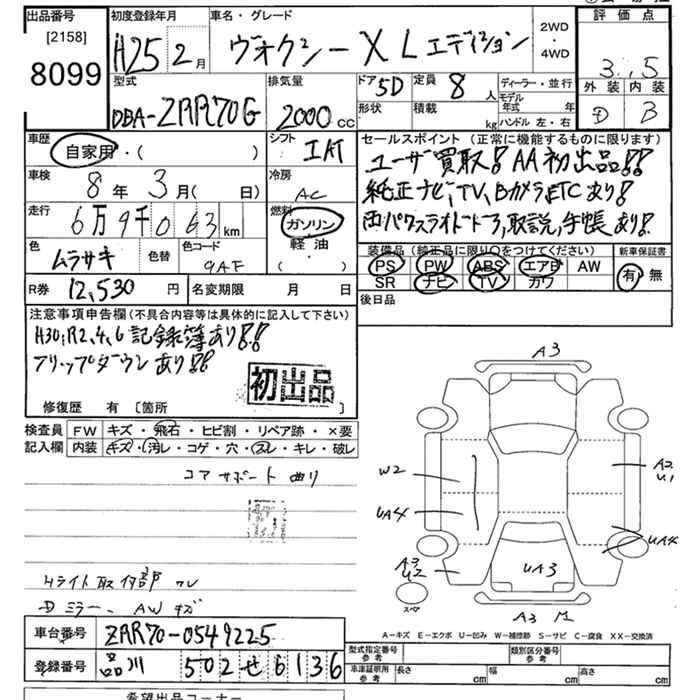 出品番号
[2158]
8099
初度登録年月
H25 2月
車名・グレード
ヴォクシー X Lエディション
2WD
・
4WD
評価点
3.5
外装 内装
D B
型式
DBA-ZRR70G
排気量
2000 cc
ドア 5D
定員 8人
形状
積載 kg
ディーラー・並行
モデル年式 年
ハンドル 左・右
車歴
自家用・( )
シフト
IAT
車検
8年 3月( 日)
冷房
AC
走行
6万9千063km
燃料
ガソリン
軽油
( )
色
ムラサキ
色替
色コード
9AF
R券 12,530円
名変期限 月 日
セールスポイント(正常に機能するものに限ります)
ユーザ買取!AA初出品!!
純正ナビ、TV、Bカメラ、ETCあり!
両パワスライドドア,取説,手帳あり!
装備品(純正品に限り○をつけてください)
PS PW ABS エアB AW
SR ナビ TV カワ
新車保証書
有 無
後日品
注意事項申告欄(不具合内容等は具体的に記入して下さい)
H30,R2,4,6 記録簿あり!!
フリップダウンあり!!
初出品
修復歴 有 [箇所 ]
検査員記入欄
FW キズ・飛石・ヒビ割・リペア跡・×要
内装 キズ・汚レ・コゲ・穴・スレ・キレ・破レ
コアサポート曲り
Hライト取付部ワレ
Dミラー、AWキズ
A3
W2
A2
U1
UA4
UA4
A3
U2
UA3
スペア
A3
A-キズ E-エクボ U-凹み W-補修跡 S-サビ C-腐食 XX-交換済
車台番号 ZRR70-0549225
登録番号 品川 502 せ 6136
型式指定番号 参考
類別区分番号 参考
車庫証明用 参考
長さ cm
幅 cm
高さ cm
希望出品コーナー